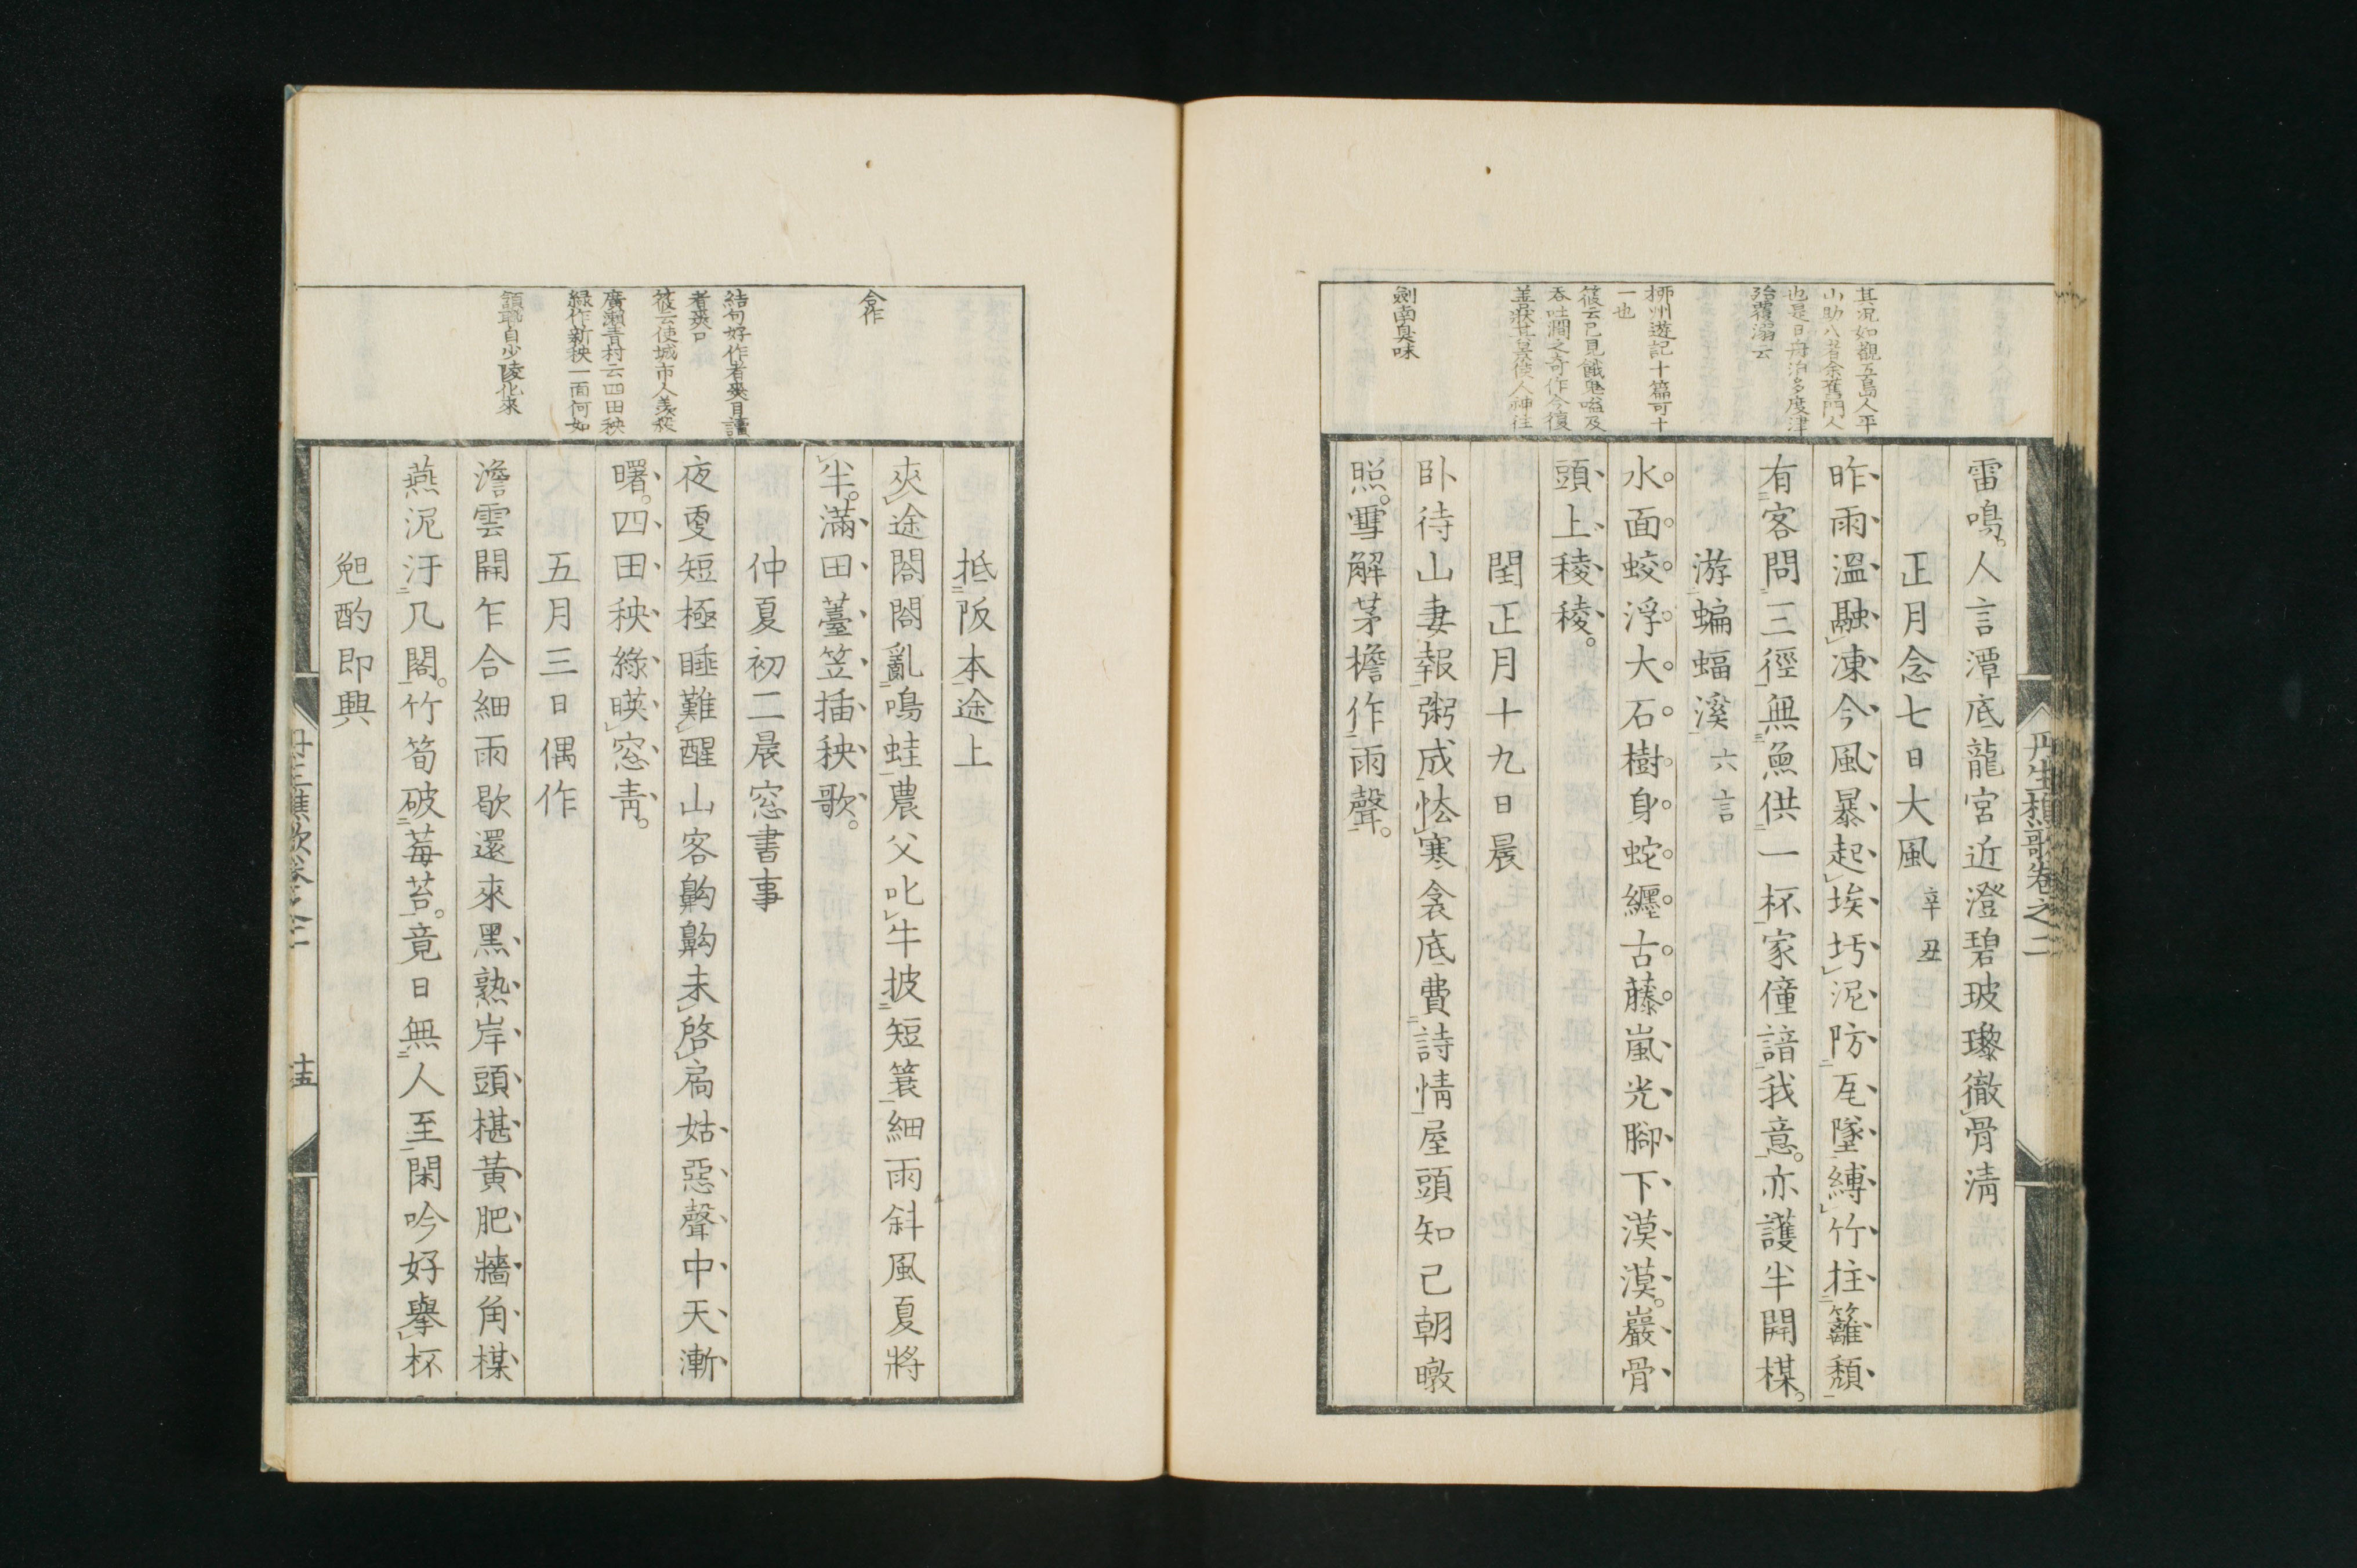 丹生樵歌卷之二
其況如觀五島人平
山助八者余舊門人
也是日舟泊多度津
殆覆溺云
柳州遊記十篇可十
一也
筱云已見餓鬼嗌及
吞吐澗之奇作今復
善狀其景使人神往
劍南臭味
雷鳴。人言潭底龍宮近澄碧玻瓈徹骨淸
正月念七日大風 辛丑
昨雨溫融凍今風暴起埃圬泥防瓦墜縛竹柱籬頹
有客問三徑無魚供一杯家僮諳我意。亦護半開楳。
游蝙蝠溪 六言
水面蛟浮大石樹身蛇纏古藤嵐光腳下漠漠。巖骨
頭上稜稜。
閏正月十九日晨
臥待山妻報粥成怯寒衾底費詩情屋頭知己朝暾
照。雪解茅檐作雨聲。
合作
結句好作者爽目讀
者爽口
筱云使城市人羨殺
廣瀨青村云四田秧
綠作新秧一面何如
頷聯自少陵化來
抵阪本途上
夾途閤閤亂鳴蛙農父叱牛披短蓑細雨斜風夏將
半。滿田薹笠插秧歌。
仲夏初二晨窓書事
夜更短極睡難醒山客齁齁未啓扃姑惡聲中天漸
曙。四田秧綠暎窓靑。
五月三日偶作
澹雲開乍合細雨歇還來黑熟岸頭椹黃肥牆角楳
燕泥汙几閣。竹筍破莓苔。竟日無人至閑吟好擧杯
夗酌即興
丹生樵歌卷之二
十五